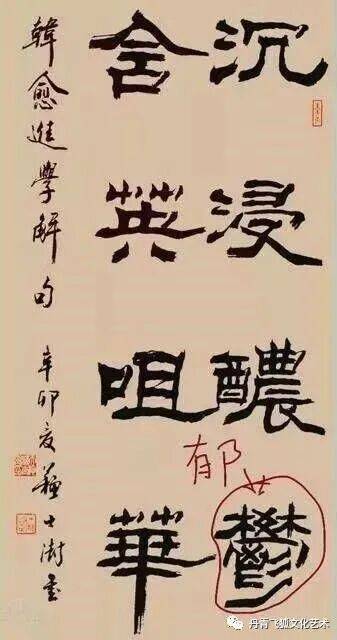 沉浸醲鬱
含英咀華
韓愈進學解句 辛卯夏 蘇士澍書
郁
丹青飞狐文化艺术